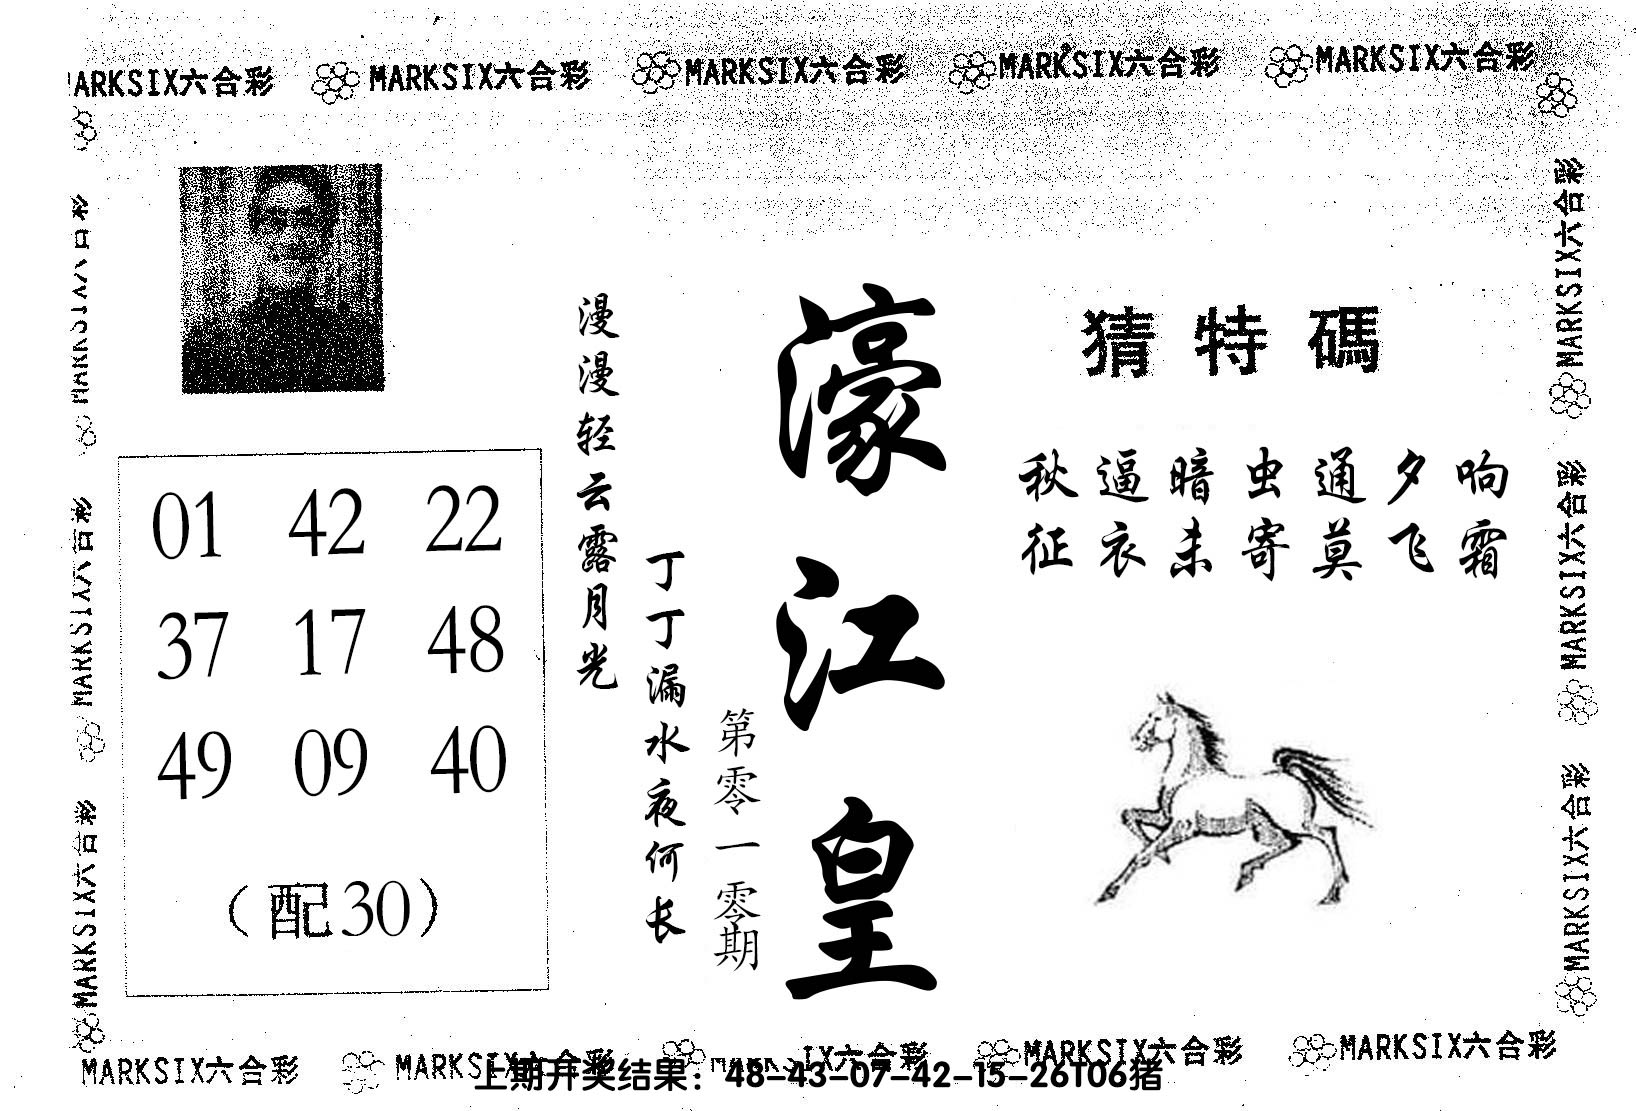 MARKSIX六合彩 MARKSIX六合彩 MARKSIX六合彩 MARKSIX六合彩 MARKSIX六合彩
MARKSIX六合彩
MARKSIX六合彩
MARKSIX六合彩
01 42 22
37 17 48
49 09 40
（配30）
漫漫轻云露月光
丁丁漏水夜何长
第零一零期
濠江皇
猜特碼
秋逼暗虫通夕响
征衣未寄莫飞霜
MARKSIX六合彩
MARKSIX六合彩
MARKSIX六合彩
MARKSIX六合彩 MARKSIX六合彩 MARKSIX六合彩 MARKSIX六合彩 MARKSIX六合彩
上期开奖结果：48-43-07-42-15-26T06猪